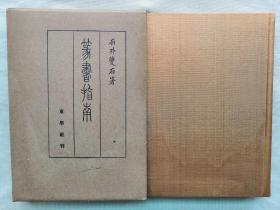 石井雙石著
篆書指南
東學社刊